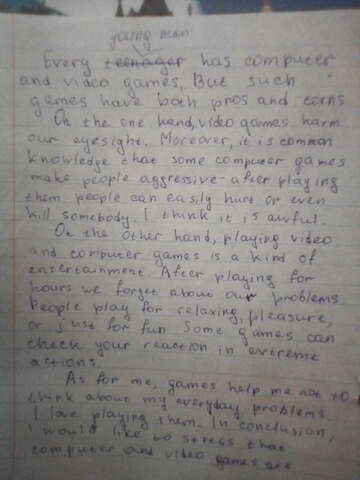 young man
Every teenager has computer
and video games, But such
games have both pros and corns
On the one hand, video games harm
our eyesight. Moreover, it is common
knowledge that some computer games
make people aggressive-after playing
them people can easily hurt or even
kill somebody. I think it is awful.
On the other hand, playing video
and computer games is a kind of
entertainment. After playing for
hours we forget about our problems
People play for relaxing, pleasure,
or just for fun Some games can
check your reaction in extreme
actions.
As for me, games help me not to
think about my everyday problems.
I love playing them. In conclusion,
I would like to stress that
computer and video games are